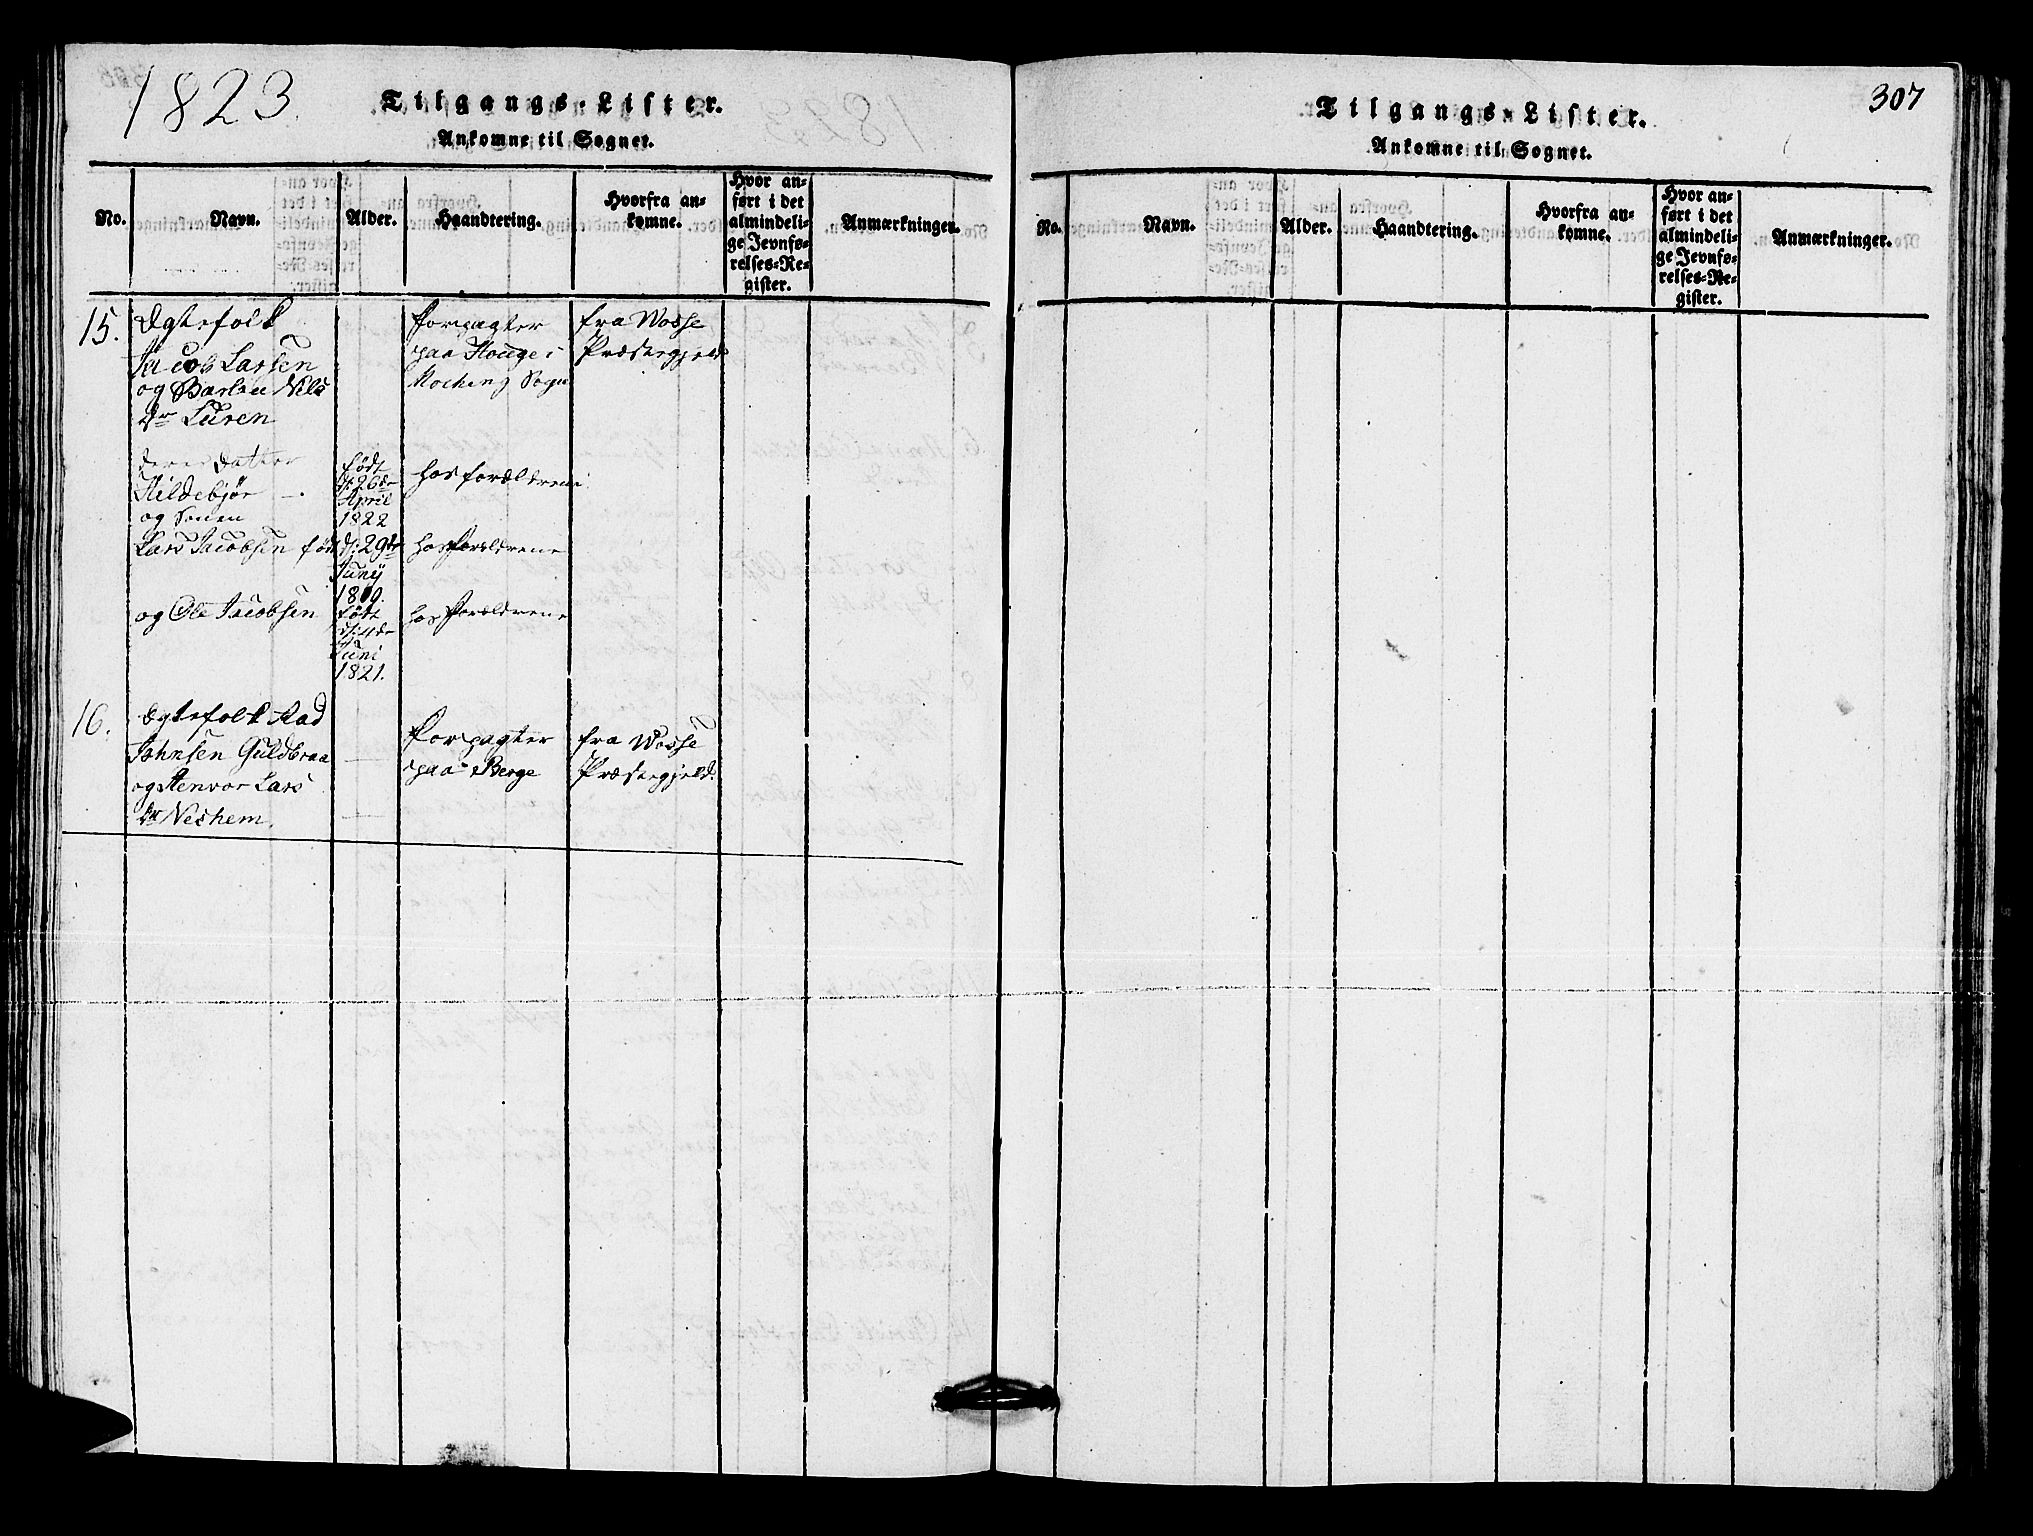 1823.
Tilgangs-Lister.
Ankomne til Sognet.
No. Navn. Alder. Haandtering. Hvorfra an-
komne. Hvor an-
ført i det
almindeli-
ge Jevnfø-
relses-Re-
gister. Anmærkninger.
15. Ægtefolk
Jacob Larsen
og Nils
Dr Luren
Forpagter
paa Houge i
Sogn
fra Wosse
Præstegjeld
deres datter
Hildebjør
født
d: 26de
April
1822
hos forældrene
og Sønen
Lars Jacobsen født
d: 29de
Juny
1819.
hos Forældrene
og Ole Jacobsen
født
d: 4de
Juni
1821.
hos Forældrene
16. Ægtefolk Aad
Johnsen Guldbraa
og Aenvor Lars
Dr Neshem.
Forpagter
paa Berge
fra Wosse
Præstegjeld.
307
Tilgangs-Lister.
Ankomne til Sognet.
No. Navn. Alder. Haandtering. Hvorfra an-
komne. Hvor an-
ført i det
almindeli-
ge Jevnfø-
relses-Re-
gister. Anmærkninger.